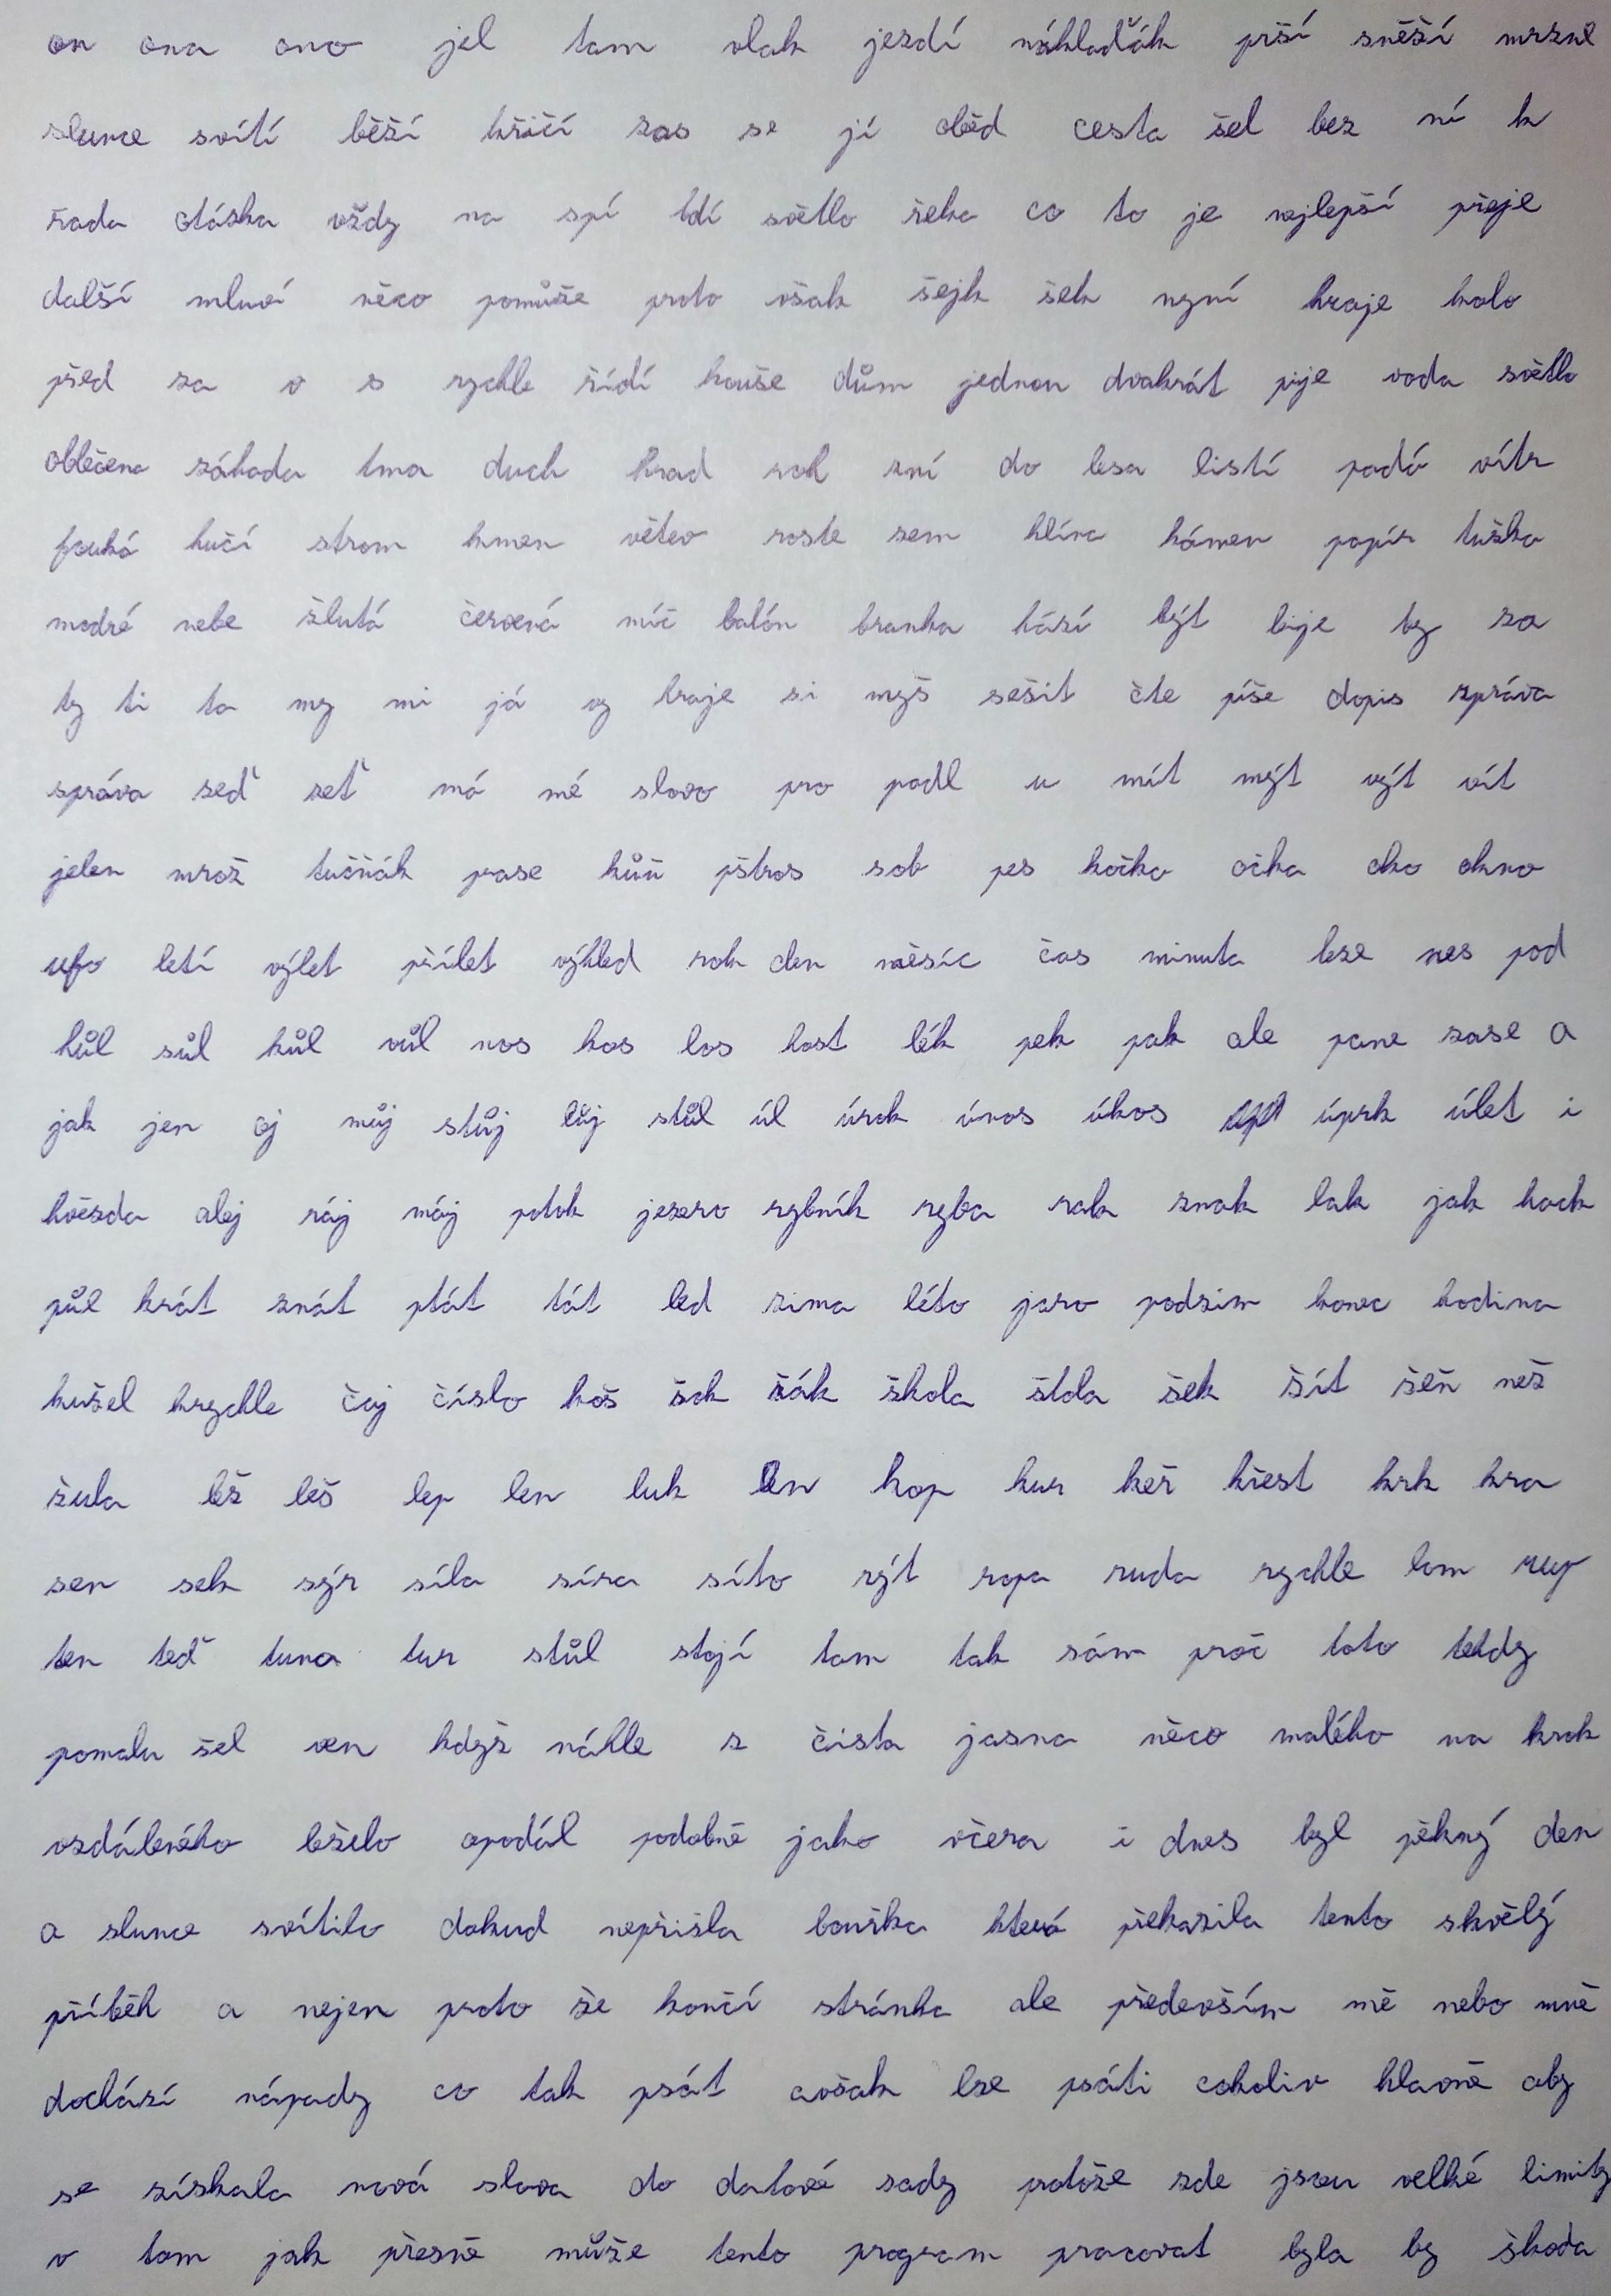 on ona ono jel tam vlak jezdí náklaďák prší sněží mrzne
slunce svítí běží křičí zas se jí oběd cesta šel bez ní k
řada otázka vždy na spí bdí světlo řeka co to je nejlepší přeje
další mluví něco pomůže proto však šejk šek nyní hraje kolo
před za v s rychle řídí kouše dům jednou dvakrát pije voda světlo
oblečena záhada tma duch hrad roh zní do lesa listí padá vítr
fouká hučí strom kmen větev roste sem hlína kámen papír tužka
modré nebe žlutá červená míč balón branka hází být bije by za
ty ti ta my mi já vy hraje si myš sešit čte píše dopis zpráva
správa seď zeť má mé slovo pro podl u mít mýt výt vít
jelen mrož tučňák prase kůň pštros sob pes kočka očka oko okno
ufo letí výlet přílet výhled rok den měsíc čas minuta leze nes pod
hůl sůl kůl vůl nos kos los kost lék pek pak ale pane zase a
jak jen oj můj stůj lůj stůl úl úrok únos úkos úprk úlet i
hvězda alej ráj máj potok jezero rybník ryba rak znak lak jak hoch
půl krát znát ptát tát led zima léto jaro podzim konec hodina
kužel krychle čaj číslo koš šok žák škola žlda šek šít žeň než
žula lež leš lep len luk len kop kur keř křest krk kra
sen sek sýr síla síra síto rýt ropa ruda rychle lom rup
ten teď tuna tur stůl stojí tam tak sám proč toto tehdy
pomalu šel ven když náhle z čista jasna něco malého na krok
vzdáleného leželo opodál podobně jako včera i dnes byl pěkný den
a slunce svítilo dokud nepřišla bouřka která překazila tento skvělý
příběh a nejen proto že končí stránka ale především mě nebo mně
dochází nápady co tak psát avšak lze psáti cokoliv hlavně aby
se získala nová slova do datové sady protože zde jsou velké limity
v tom jak přesně může tento program pracovat byla by škoda